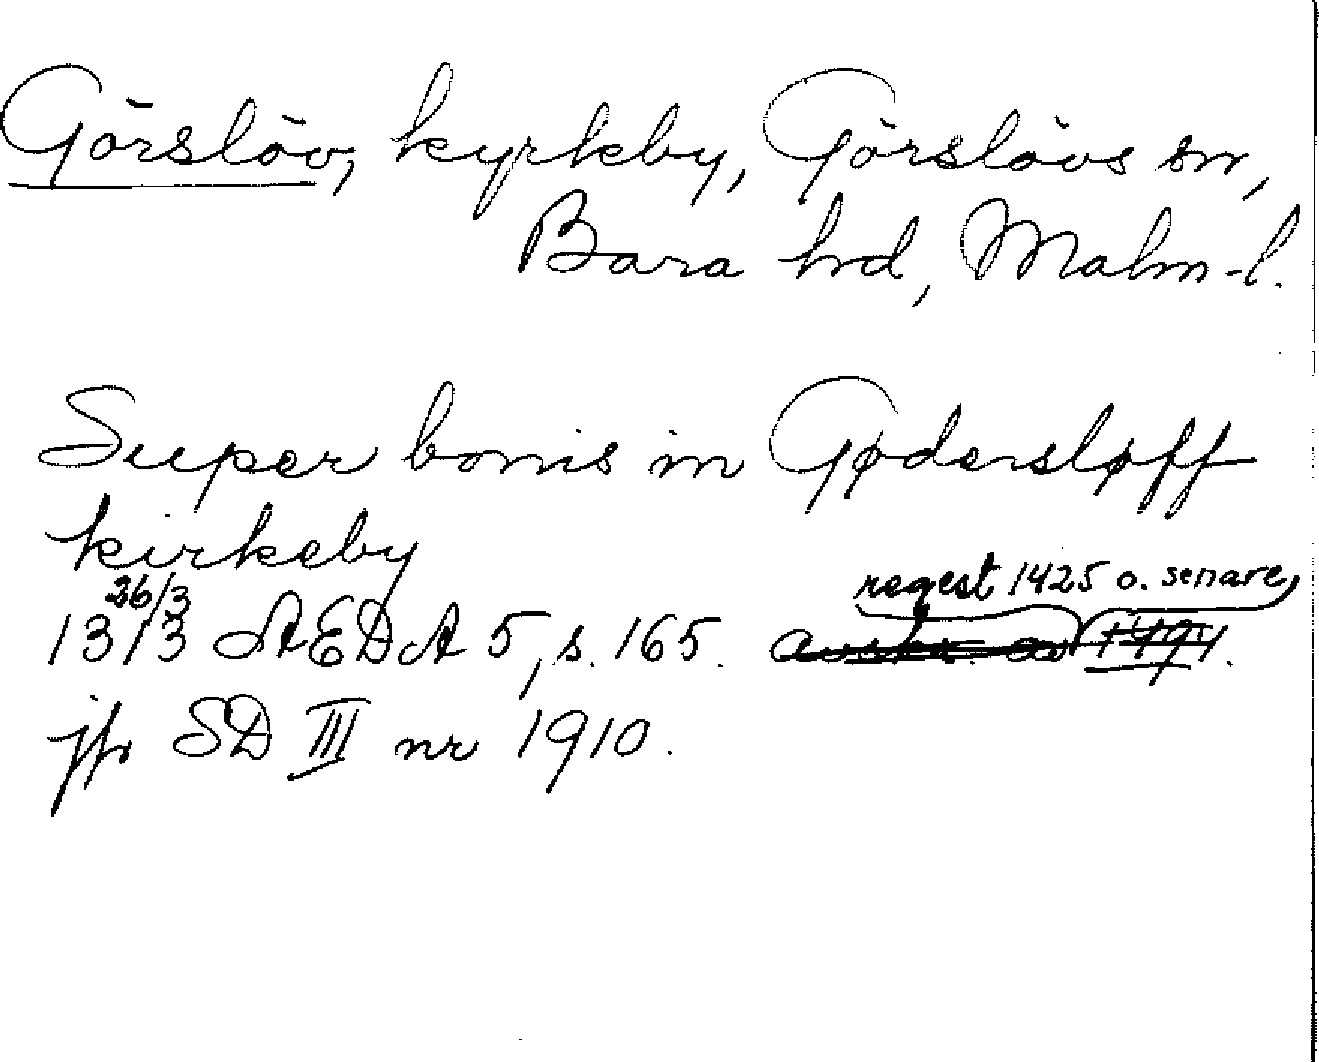 Görslöv, kyrkby, Görslövs sn,
Bara hd, Malm-l.
Super bonis in Gødersløff
kirkeby
26/3
1313 ÆDA 5, s. 165. regest 1425 o. senare
avskr. av 1494.
jfr SD III nr 1910.